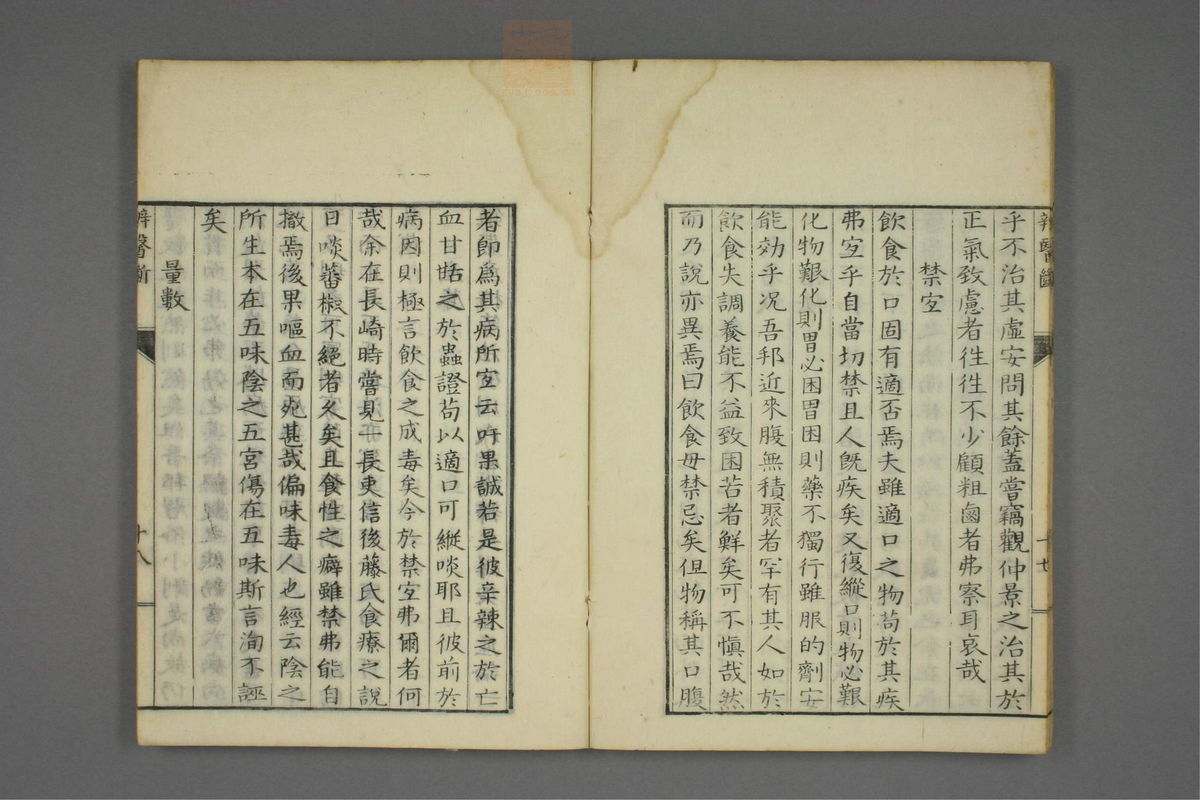 乎不治其虛安問其餘蓋嘗竊觀仲景之治其於
正氣致慮者徃徃不少顧粗鹵者弗察耳哀哉
禁宐
飮食於口固有適否焉夫雖適口之物苟於其疾
弗宐乎自當切禁且人旣疾矣又復縱口則物必艱
化物艱化則胃必困胃困則藥不獨行雖服的劑安
能効乎況吾邦近來腹無積聚者罕有其人如於
飮食失調養能不益致困苦者鮮矣可不愼哉然
而乃說亦異焉曰飮食毋禁忌矣但物稱其口腹
辨醫斷
十七
者卽爲其病所宐云吁果誠若是彼辛辣之於亡
血甘甛之於蟲證苟以適口可縱啖耶且彼前於
病因則極言飮食之成毒矣今於禁宐弗爾者何
哉余在長崎時嘗見一長吏信後藤氏食療之說
日啖蕃椒不絕者久矣且食性之癖雖禁弗能自
撤焉後果嘔血而死甚哉偏味毒人也經云陰之
所生本在五味陰之五宮傷在五味斯言洵不誣
矣
量數
辨醫斷
十八